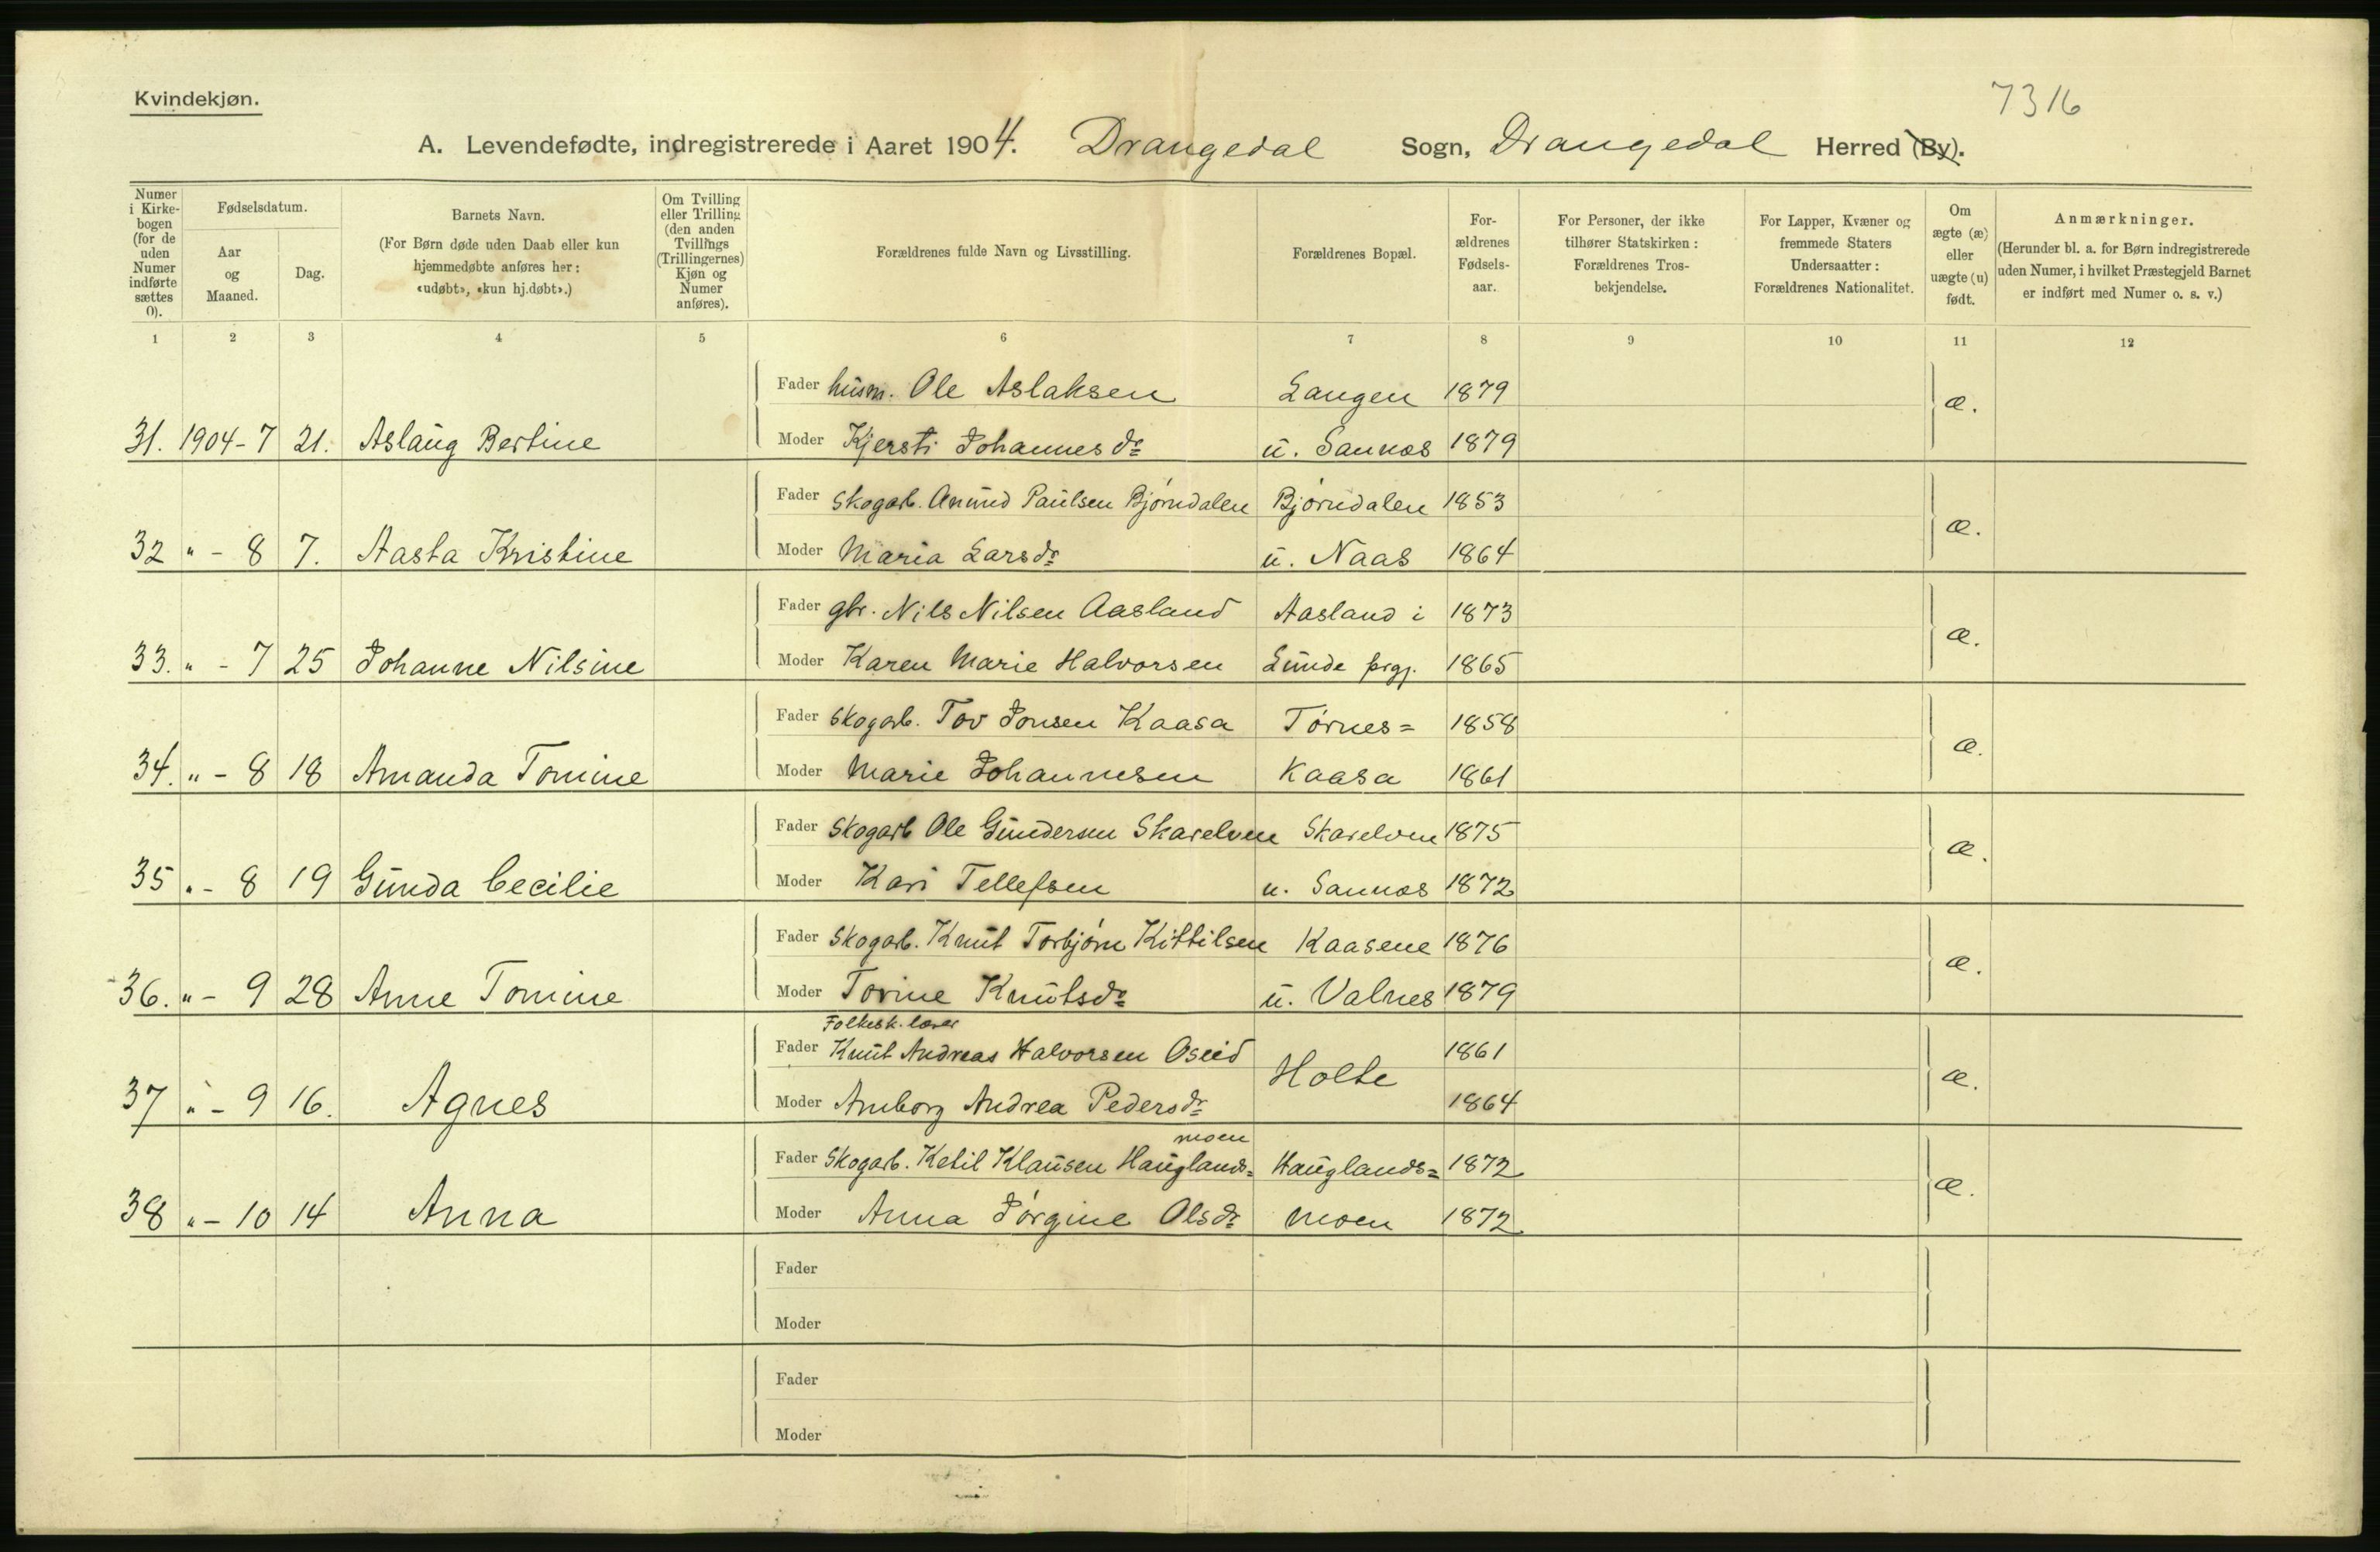 7316
Kvindekjøn.
A. Levendefødte, indregistrerede i Aaret 1904. Drangedal Sogn, Drangedal Herred (By).
Numer i Kirke-bogen (for de uden Numer indførte sættes 0).
Fødselsdatum.
Aar og Maaned.
Dag.
Barnets Navn.
(For Børn døde uden Daab eller kun hjemmedøbte anføres her: «udøbt», «kun hj.døbt».)
Om Tvilling eller Trilling (den anden Tvillings (Trillingernes) Kjøn og Numer anføres).
Forældrenes fulde Navn og Livsstilling.
Forældrenes Bopæl.
For-ældrenes Fødsels-aar.
For Personer, der ikke tilhører Statskirken: Forældrenes Tros-bekjendelse.
For Lapper, Kvæner og fremmede Staters Undersaatter: Forældrenes Nationalitet.
Om ægte (æ) eller uægte (u) født.
Anmærkninger.
(Herunder bl. a. for Børn indregistrerede uden Numer, i hvilket Præstegjeld Barnet er indført med Numer o. s. v.)
1 2 3 4 5 6 7 8 9 10 11 12
Fader husm. Ole Aslaksen Langen 1879 æ.
31. 1904-7 21. Aslaug Bertine Moder Kjersti Johannesdr u. Sannes 1879
Fader Skogarb. Anund Paulsen Bjørndalen Bjørndalen 1853 æ.
32 " - 8 7. Aasta Kristine Moder Maria Larsdr u. Naas 1864
Fader gbr. Nils Nilsen Aasland Aasland i 1873 æ.
33. " - 7 25 Johanne Nilsine Moder Karen Marie Halvorsen Lunde prgj. 1865
Fader Skogarb. Tov Jonsen Kaasa Tørnes= 1858 æ.
34. " - 8 18 Amanda Tomine Moder Marie Johannesen Kaasa 1861
Fader Skogarb Ole Gundersen Skarelven Skarelven 1875 æ.
35 " - 8 19 Gunda Cecilie Moder Kari Tellefsen u. Sannes 1872
Fader Skogarb. Knut Torbjørn Kittilsen Kaasene 1876 æ.
36. " - 9 28 Anne Tomine Moder Torine Knutsdr u. Valnes 1879
Folkesk. lærer
Fader Knut Andreas Halvorsen Oseid Holte 1861 æ.
37 " - 9 16. Agnes Moder Amborg Andrea Pedersdr 1864
moen
Fader Skogarb. Ketil Klausen Hauglands= Hauglands= 1872 æ.
38 " - 10 14 Anna Moder Anna Jørgine Olsdr moen 1872
Fader
Moder
Fader
Moder